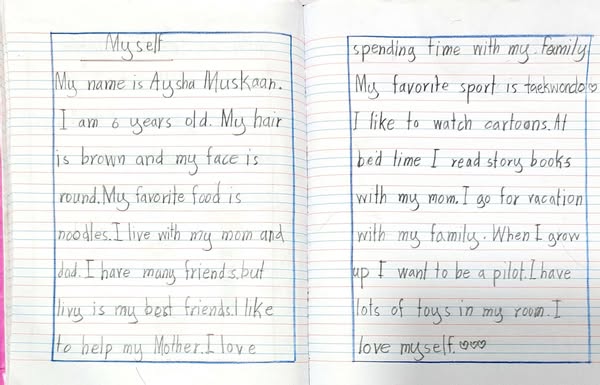 Myself
My name is Aysha Muskaan.
I am 6 years old. My hair
is brown and my face is
round. My favorite food is
noodles. I live with my mom and
dad. I have many friends. but
livy is my best friends. I like
to help my Mother. I love
spending time with my family
My favorite sport is taekwondo♡
I like to watch cartoons. At
bed time I read story books
with my mom. I go for vacation
with my family. When I grow
up I want to be a pilot. I have
lots of toys in my room. I
love myself. ♡♡♡